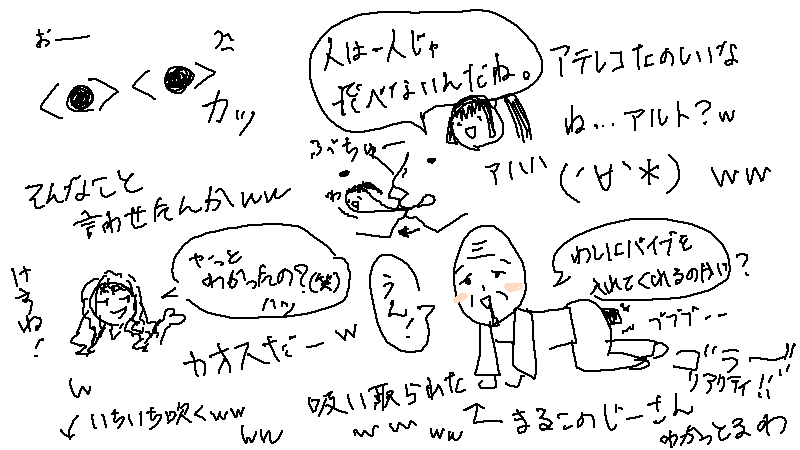 おー
カッ
人は一人じゃ
だべないんだね。
アテレコたのしいな
ね…アルト?w
アハハ
(´∀`*) ww
ぶちゅー
そんなこと
言わせたんかww
やーっと
わかったの?(笑)
ハッ
けるね!
うん!
わしにバイブを
入れてくれるのかい?
ブブブ…
カオスだーw
ゴラーッ
リアクティ!!
w
↙いちいち吹くww
ww
吸い取られた
ww ww
←まるこのじーさん
わかっとるわ